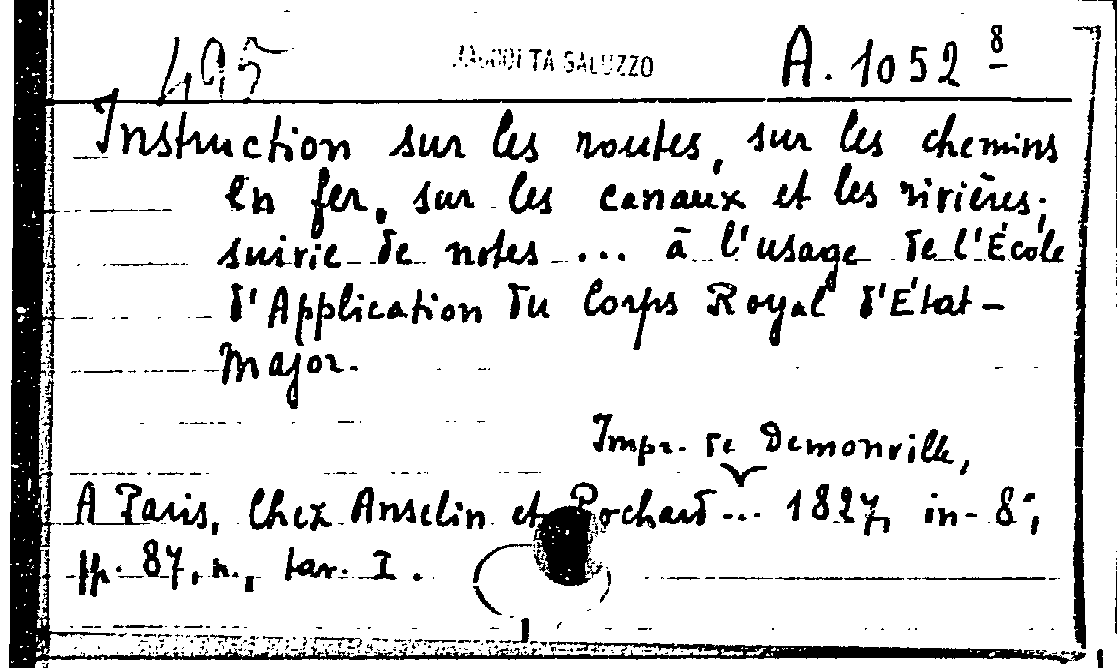 495 RACCOLTA SALUZZO A. 1052 8
Instruction sur les routes, sur les chemins
en fer, sur les canaux et les rivières;
suivie de notes ... à l'usage de l'École
d'Application du Corps Royal d'État-
Major.
Impr. de Demonville,
A Paris, Chez Anselin et Pochard ... 1827, in-8°,
pp. 87, n., tav. I.